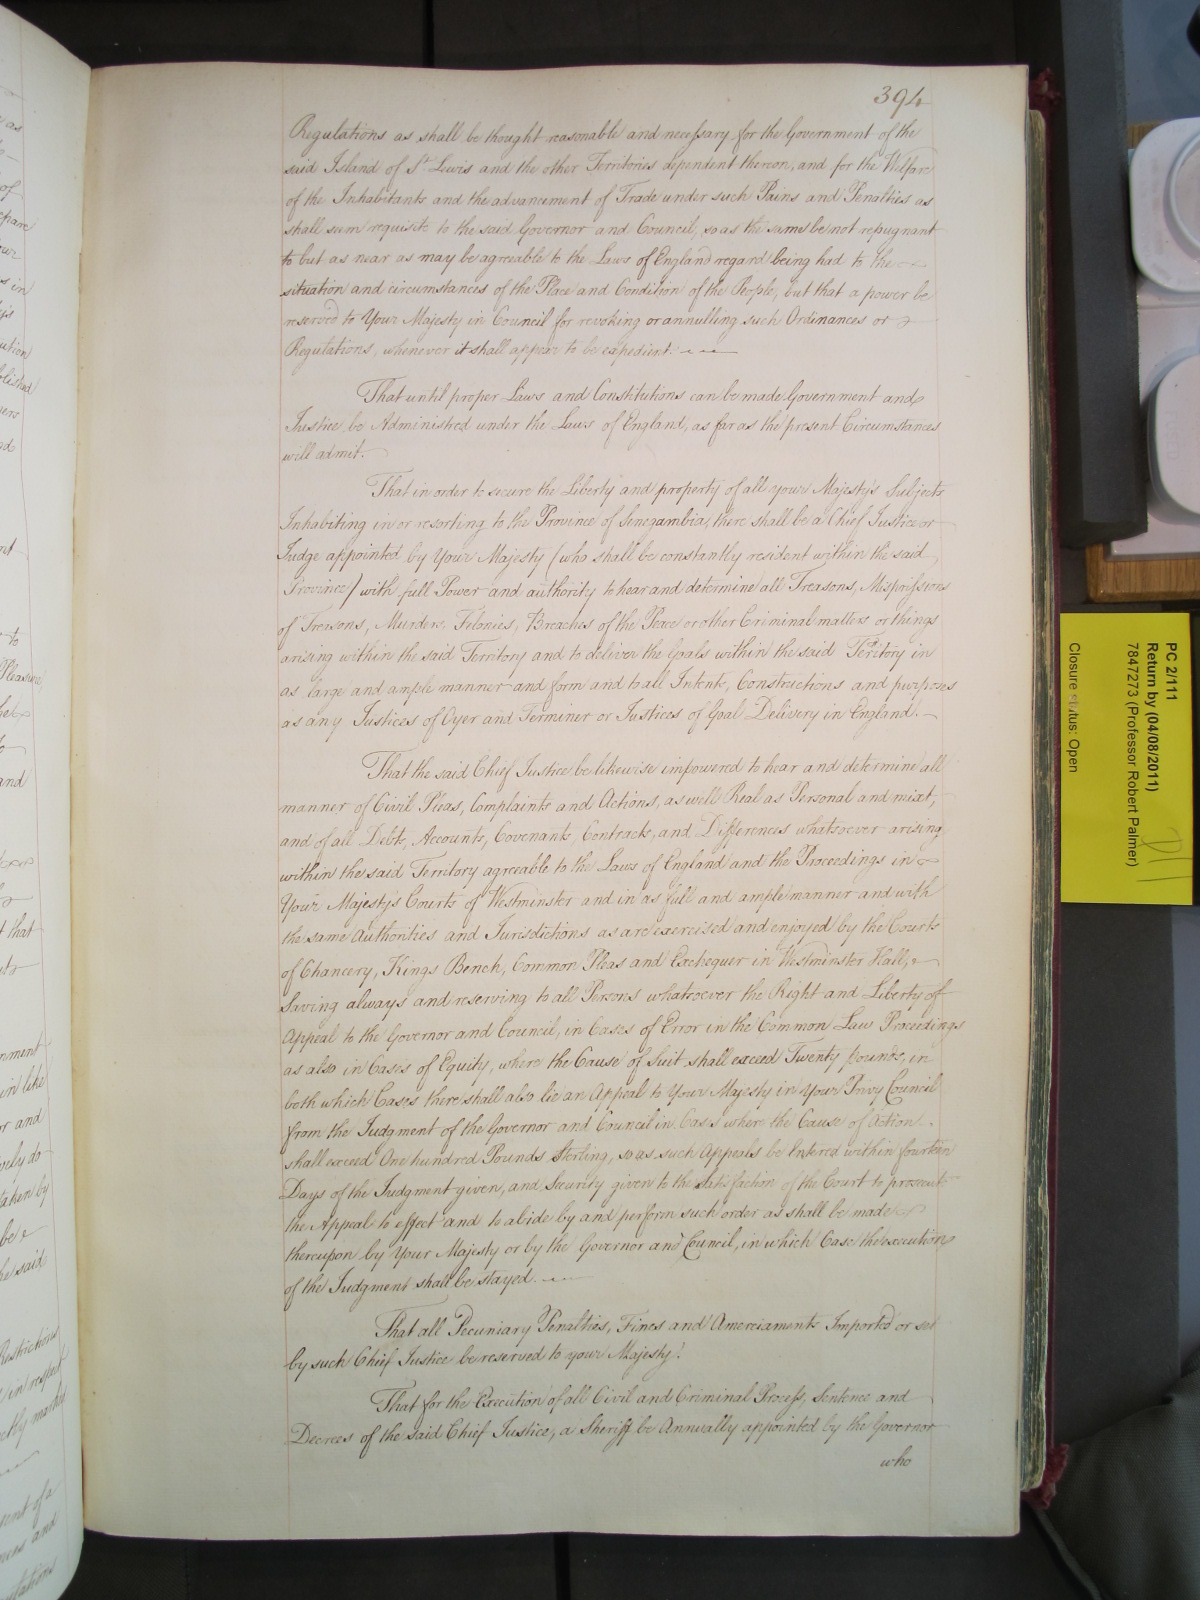 394
Regulations as shall be thought reasonable and necessary for the Government of the
said Island of St Lewis and the other Territories dependent thereon, and for the Welfare
of the Inhabitants and the advancement of Trade under such Pains and Penalties as
shall seem requisite to the said Governor and Council, so as the same be not repugnant
to but as near as may be agreeable to the Laws of England regard being had to the
situation and circumstances of the Place and Condition of the People, but that a power be
reserved to Your Majesty in Council for revoking or annulling such Ordinances or
Regulations, whenever it shall appear to be expedient.
That until proper Laws and Constitutions can be made Government and
Justice be Administred under the Laws of England, as far as the present Circumstances
will admit.
That in order to secure the Liberty and property of all your Majesty's Subjects
Inhabiting in or resorting to the Province of Senegambia, there shall be a Chief Justice or
Judge appointed by Your Majesty (who shall be constantly resident within the said
Province) with full Power and authority to hear and determine all Treasons, Misprissions
of Treasons, Murders, Felonies, Breaches of the Peace or other Criminal matters or things
arising within the said Territory and to deliver the Goals within the said Territory in
as large and ample manner and form and to all Intents, Constructions and purposes
as any Justices of Oyer and Terminer or Justices of Goal Delivery in England.
That the said Chief Justice be likewise impowered to hear and determine all
manner of Civil Pleas, Complaints and Actions, as well Real as Personal and mixt,
and of all Debts, Accounts, Covenants, Contracts, and Differences whatsoever arising
within the said Territory agreeable to the Laws of England and the Proceedings in
Your Majesty's Courts of Westminster and in as full and ample manner and with
the same Authorities and Jurisdictions as are exercised and enjoyed by the Courts
of Chancery, Kings Bench, Common Pleas and Exchequer in Westminster Hall,
Saving always and reserving to all Persons whatsoever the Right and Liberty of
Appeal to the Governor and Council, in Cases of Error in the Common Law Proceedings
as also in Cases of Equity, where the Cause of Suit shall exceed Twenty pounds, in
both which Cases there shall also lie an Appeal to Your Majesty in Your Privy Council
from the Judgment of the Governor and Council in Cases where the Cause of Action
shall exceed One hundred Pounds Sterling, so as such Appeals be Entered within fourteen
Days of the Judgment given, and Security given to the satisfaction of the Court to prosecute
the Appeal to effect and to abide by and perform such order as shall be made
thereupon by Your Majesty or by the Governor and Council, in which Case the execution
of the Judgment shall be stayed.
That all Pecuniary Penalties, Fines and Amerciaments Imported or set
by such Chief Justice be reserved to your Majesty.
That for the Execution of all Civil and Criminal Process, Sentence and
Decrees of the said Chief Justice, a Sheriff be Annually appointed by the Governor
who
PC 2/111
Return by (04/08/2011)
7847273 (Professor Robert Palmer)
Closure status: Open